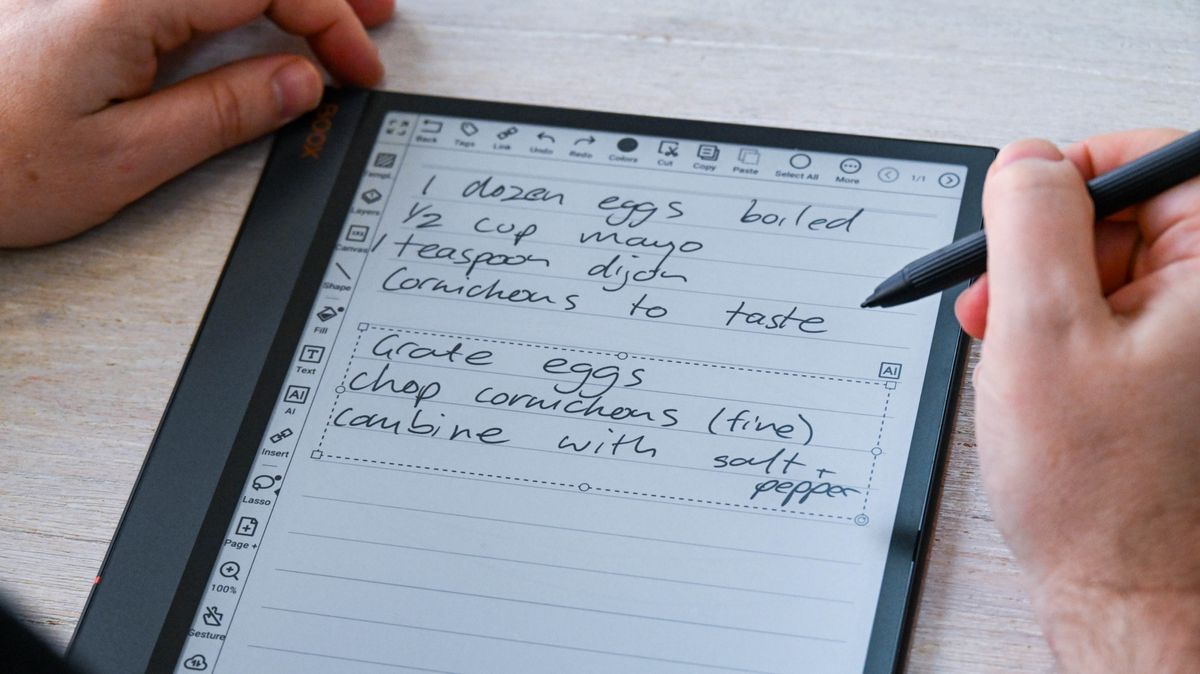 BOOX
Back Tags Link Undo Redo Colors Cut Copy Paste Select All More 1/1
Templ.
Layers
Canvas
Shape
Fill
Text
AI
AI
Insert
Lasso
Page +
100%
Gesture
1 dozen eggs boiled
1/2 cup mayo
1 teaspoon dijon
Cornichons to taste
AI
Grate eggs
chop cornichons (fine)
combine with salt +
pepper